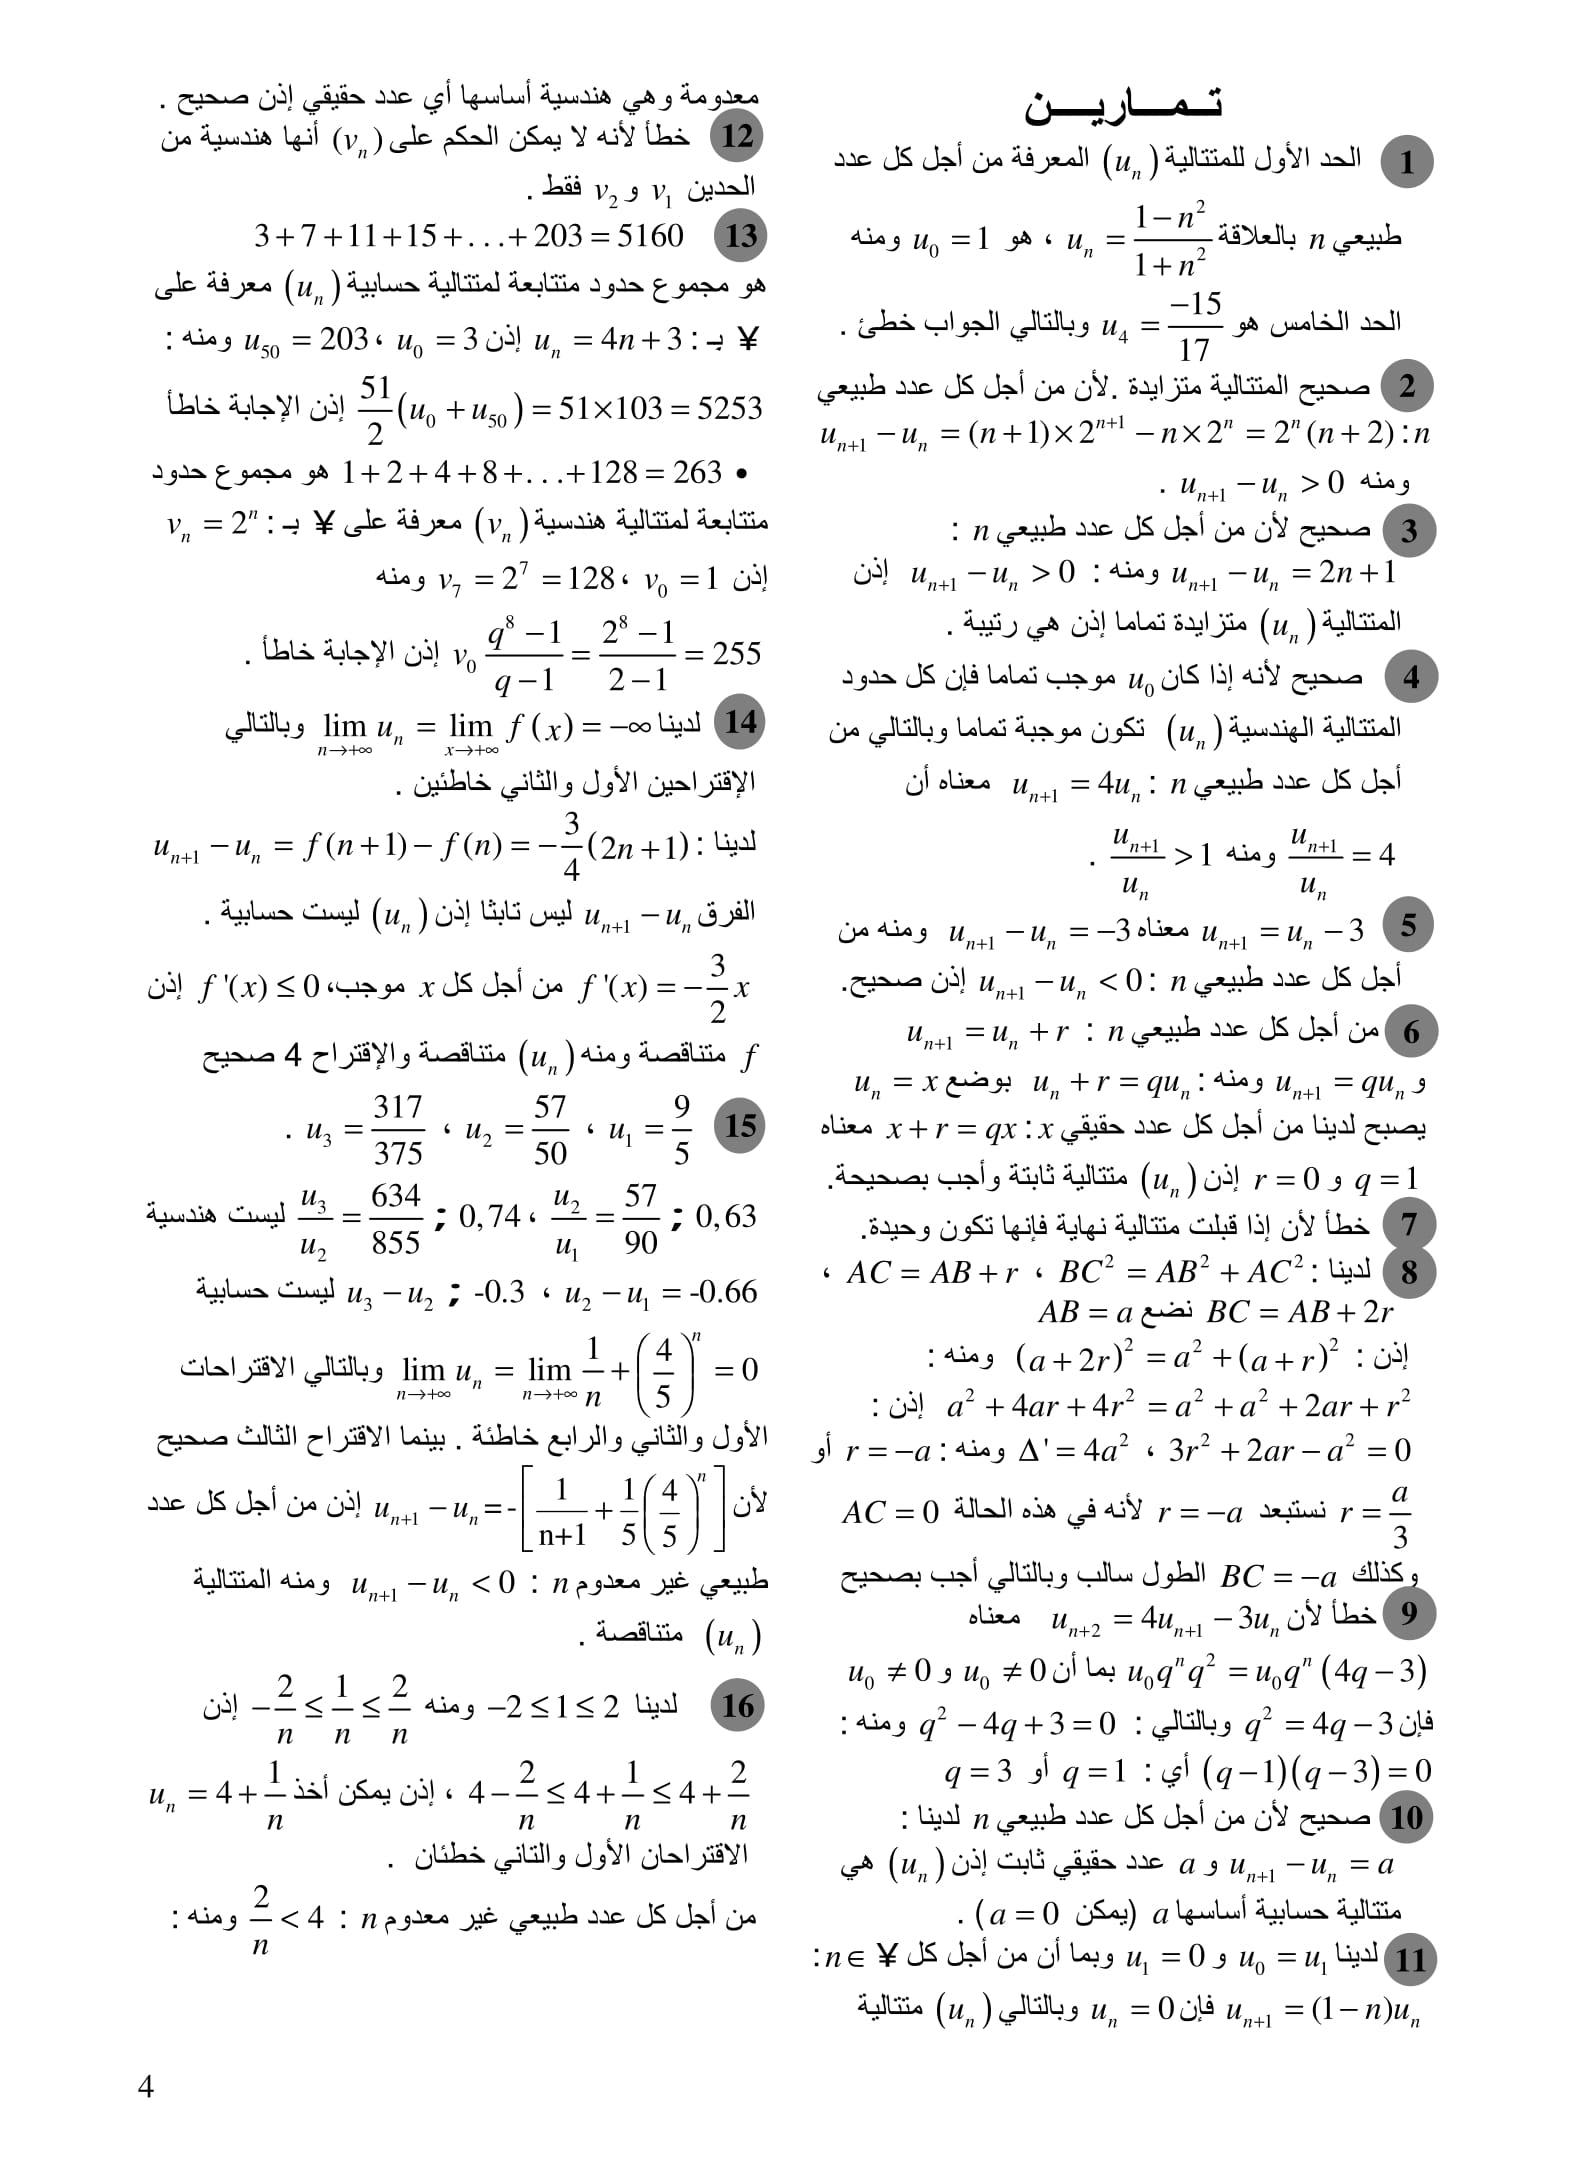 تـمـــاريـــن
1 الحد الأول للمتتالية (u_n) المعرفة من أجل كل عدد
طبيعي n بالعلاقة u_n = \frac{1-n^2}{1+n^2} ، هو u_0 = 1 ومنه
الحد الخامس هو u_4 = \frac{-15}{17} وبالتالي الجواب خطئ .
2 صحيح المتتالية متزايدة .لأن من أجل كل عدد طبيعي
n : u_{n+1} - u_n = (n+1)×2^{n+1} - n×2^n = 2^n(n+2)
ومنه u_{n+1} - u_n > 0 .
3 صحيح لأن من أجل كل عدد طبيعي n :
u_{n+1} - u_n = 2n+1 ومنه : u_{n+1} - u_n > 0 إذن
المتتالية (u_n) متزايدة تماما إذن هي رتيبة .
4 صحيح لأنه إذا كان u_0 موجب تماما فإن كل حدود
المتتالية الهندسية (u_n) تكون موجبة تماما وبالتالي من
أجل كل عدد طبيعي n : u_{n+1} = 4u_n معناه أن
\frac{u_{n+1}}{u_n} = 4 ومنه \frac{u_{n+1}}{u_n} > 1 .
5 u_{n+1} = u_n - 3 معناه u_{n+1} - u_n = -3 ومنه من
أجل كل عدد طبيعي n : u_{n+1} - u_n < 0 إذن صحيح.
6 من أجل كل عدد طبيعي n : u_{n+1} = u_n + r
و u_{n+1} = qu_n ومنه : u_n + r = qu_n بوضع u_n = x
يصبح لدينا من أجل كل عدد حقيقي x : x + r = qx معناه
q = 1 و r = 0 إذن (u_n) متتالية ثابتة وأجب بصحيحة.
7 خطأ لأن إذا قبلت متتالية نهاية فإنها تكون وحيدة.
8 لدينا : BC^2 = AB^2 + AC^2 ، AC = AB + r ،
BC = AB + 2r نضع AB = a
إذن : (a+2r)^2 = a^2 + (a+r)^2 ومنه :
a^2 + 4ar + 4r^2 = a^2 + a^2 + 2ar + r^2 إذن :
3r^2 + 2ar - a^2 = 0 ، Δ' = 4a^2 ومنه : r = -a أو
r = \frac{a}{3} نستبعد r = -a لأنه في هذه الحالة AC = 0
وكذلك BC = -a الطول سالب وبالتالي أجب بصحيح
9 خطأ لأن u_{n+2} = 4u_{n+1} - 3u_n معناه
u_0q^nq^2 = u_0q^n(4q-3) بما أن u_0 ≠ 0 و u_0 ≠ 0
فإن q^2 = 4q - 3 وبالتالي : q^2 - 4q + 3 = 0 ومنه :
(q-1)(q-3) = 0 أي : q = 1 أو q = 3
10 صحيح لأن من أجل كل عدد طبيعي n لدينا :
u_{n+1} - u_n = a و a عدد حقيقي ثابت إذن (u_n) هي
متتالية حسابية أساسها a (يمكن a = 0) .
11 لدينا u_0 = u_1 و u_1 = 0 وبما أن من أجل كل n ∈ ¥ :
u_{n+1} = (1-n)u_n فإن u_n = 0 وبالتالي (u_n) متتالية
معدومة وهي هندسية أساسها أي عدد حقيقي إذن صحيح .
12 خطأ لأنه لا يمكن الحكم على (v_n) أنها هندسية من
الحدين v_1 و v_2 فقط .
13 3+7+11+15+...+203 = 5160
هو مجموع حدود متتابعة لمتتالية حسابية (u_n) معرفة على
¥ بـ : u_n = 4n+3 إذن u_0 = 3 ، u_{50} = 203 ومنه :
\frac{51}{2}(u_0 + u_{50}) = 51×103 = 5253 إذن الإجابة خاطأ
• 1+2+4+8+...+128 = 263 هو مجموع حدود
متتابعة لمتتالية هندسية (v_n) معرفة على ¥ بـ : v_n = 2^n
إذن v_0 = 1 ، v_7 = 2^7 = 128 ومنه
v_0\frac{q^8-1}{q-1} = \frac{2^8-1}{2-1} = 255 إذن الإجابة خاطأ .
14 لدينا \lim_{n→+∞} u_n = \lim_{x→+∞} f(x) = -∞ وبالتالي
الإقتراحين الأول والثاني خاطئين .
لدينا : u_{n+1} - u_n = f(n+1) - f(n) = -\frac{3}{4}(2n+1)
الفرق u_{n+1} - u_n ليس تابثا إذن (u_n) ليست حسابية .
f'(x) = -\frac{3}{2}x من أجل كل x موجب، f'(x) ≤ 0 إذن
f متناقصة ومنه (u_n) متناقصة والإقتراح 4 صحيح
15 u_1 = \frac{9}{5} ، u_2 = \frac{57}{50} ، u_3 = \frac{317}{375} .
\frac{u_2}{u_1} = \frac{57}{90} ; 0,63 ، \frac{u_3}{u_2} = \frac{634}{855} ; 0,74 ليست هندسية
u_2 - u_1 = -0.66 ، u_3 - u_2 ; -0.3 ليست حسابية
\lim_{n→+∞} u_n = \lim_{n→+∞} \frac{1}{n} + (\frac{4}{5})^n = 0 وبالتالي الاقتراحات
الأول والثاني والرابع خاطئة . بينما الاقتراح الثالث صحيح
لأن u_{n+1} - u_n = -[\frac{1}{n+1} + \frac{1}{5}(\frac{4}{5})^n] إذن من أجل كل عدد
طبيعي غير معدوم n : u_{n+1} - u_n < 0 ومنه المتتالية
(u_n) متناقصة .
16 لدينا -2 ≤ 1 ≤ 2 ومنه -\frac{2}{n} ≤ \frac{1}{n} ≤ \frac{2}{n} إذن
4 - \frac{2}{n} ≤ 4 + \frac{1}{n} ≤ 4 + \frac{2}{n} ، إذن يمكن أخذ u_n = 4 + \frac{1}{n}
الاقتراحان الأول والتاني خطئان .
من أجل كل عدد طبيعي غير معدوم n : \frac{2}{n} < 4 ومنه :
4